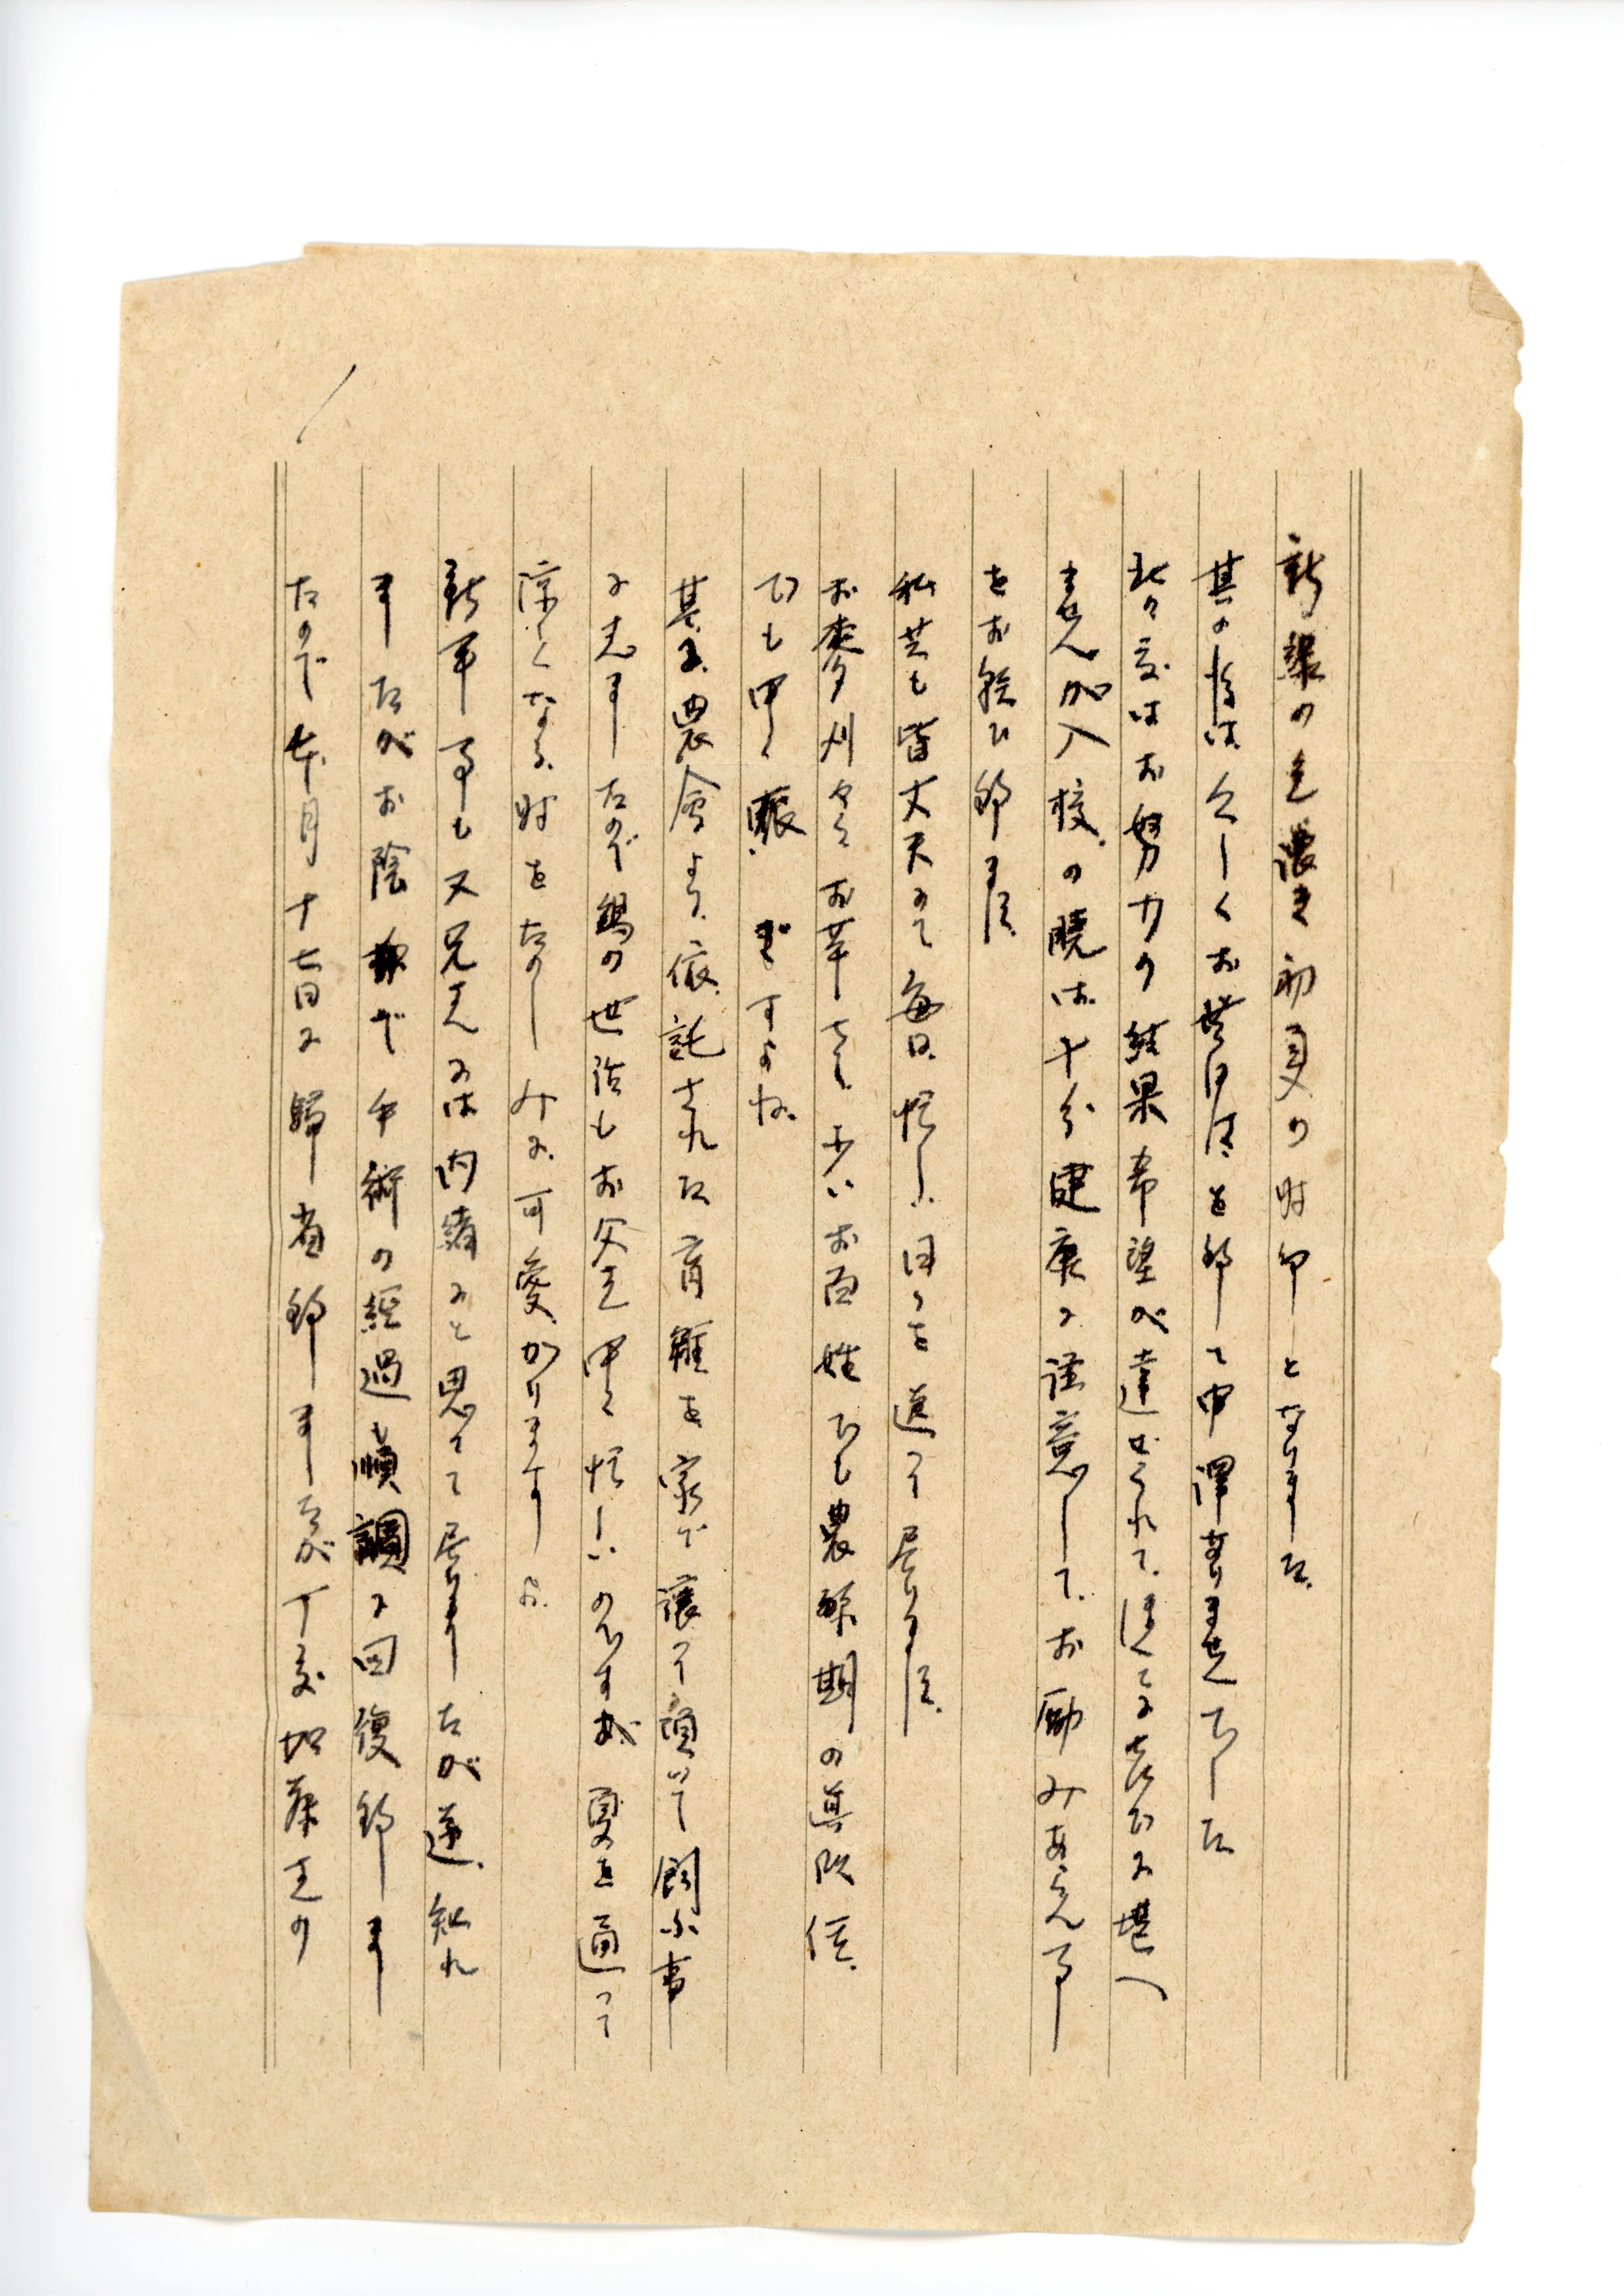 新緑の色濃き初夏の時節となりました
其の後は久しくお許りを致して申譯ありませんでした
此の度はお努力の結果希望が達せられてほんとに喜びに堪へ
ません 加入校の暁は十分健康に注意して お励みあらん事
をお祈り致します
私共も皆丈夫にて毎日忙しい日々を送って居ります
お麥刈やらお芋さし 少いお百姓でも農繁期の真只中
でも中々賑ですよね
其の上農會より依託された育雛を家で譲って頂いて飼ふ事
に志ましたので鶏の世話もお父さん中々忙しいのですが 夏を通って
涼しくなる時をたのしみに可愛がりますよ
新平事も又兄さんには内緒にと思って居りましたが逆 知れ
ましたがお陰様で手術の経過も順調に回復致しま
したので本月十七日に歸省致しましたが丁度加藤さんの